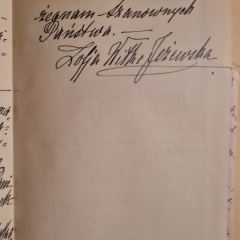 żegnam Szanownych
Państwa. —
Zofja Jeżewska